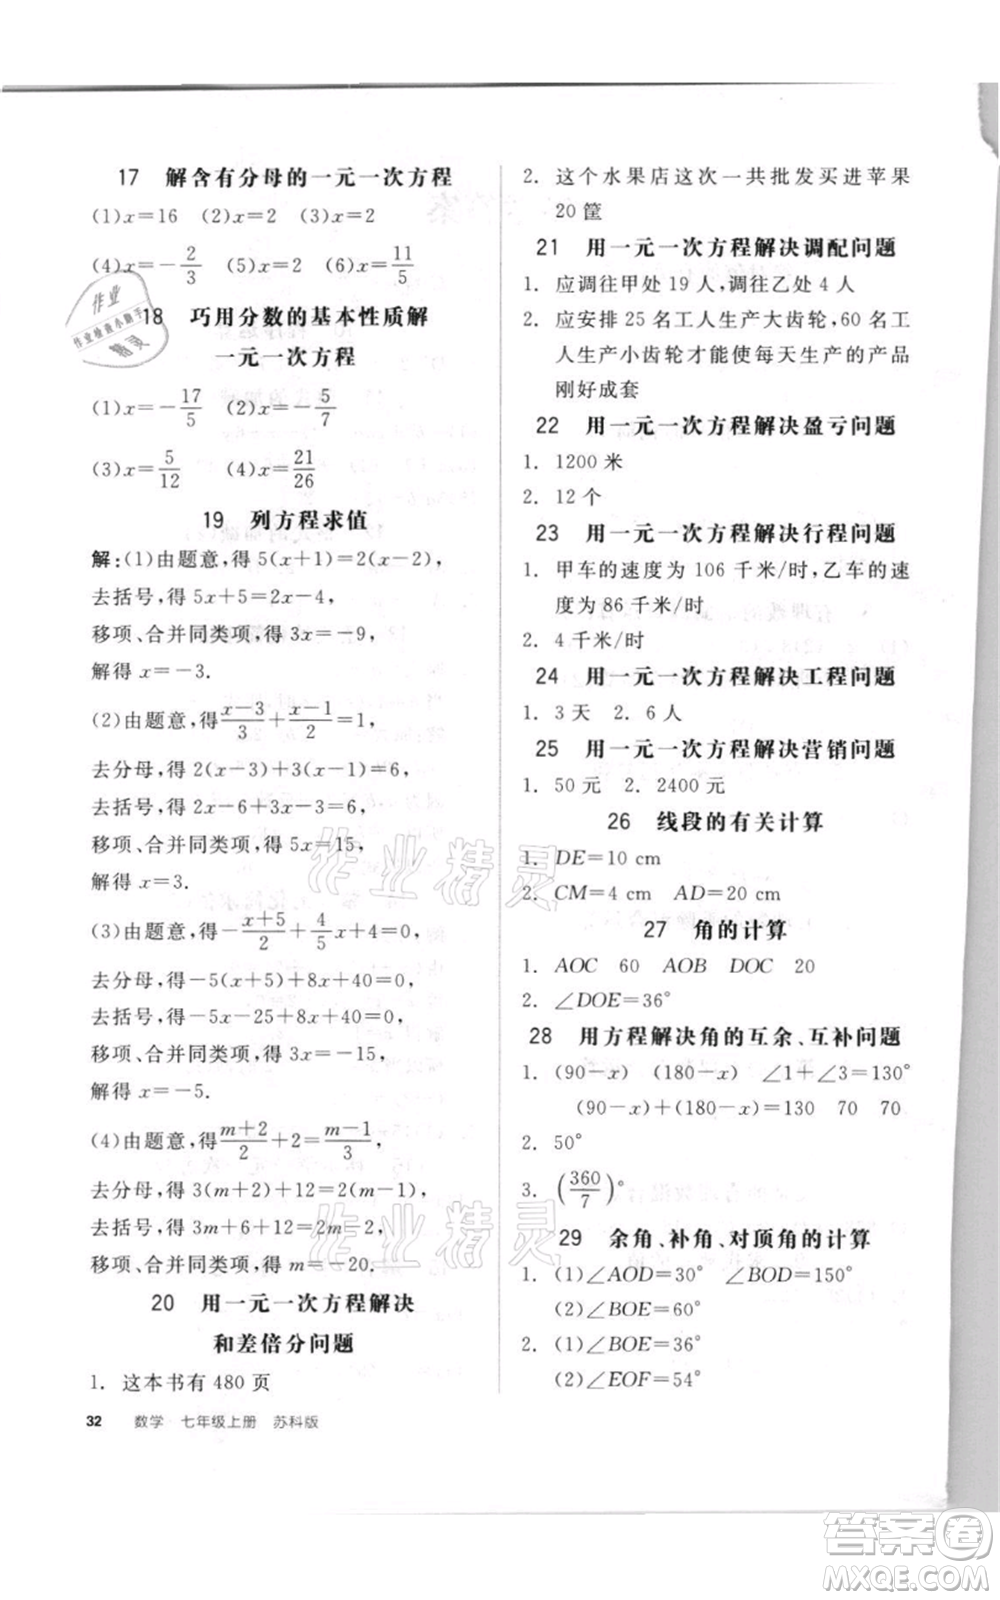 17 解含有分母的一元一次方程
(1)x=16 (2)x=2 (3)x=2
(4)x=-2/3 (5)x=2 (6)x=11/5
18 巧用分数的基本性质解
一元一次方程
(1)x=-17/5 (2)x=-5/7
(3)x=5/12 (4)x=21/26
19 列方程求值
解:(1)由题意,得 5(x+1)=2(x-2),
去括号,得 5x+5=2x-4,
移项、合并同类项,得 3x=-9,
解得 x=-3.
(2)由题意,得(x-3)/3+(x-1)/2=1,
去分母,得 2(x-3)+3(x-1)=6,
去括号,得 2x-6+3x-3=6,
移项、合并同类项,得 5x=15,
解得 x=3.
(3)由题意,得-(x+5)/2+4/5x+4=0,
去分母,得-5(x+5)+8x+40=0,
去括号,得-5x-25+8x+40=0,
移项、合并同类项,得 3x=-15,
解得 x=-5.
(4)由题意,得(m+2)/2+2=(m-1)/3,
去分母,得 3(m+2)+12=2(m-1),
去括号,得 3m+6+12=2m-2,
移项、合并同类项,得 m=-20.
20 用一元一次方程解决
和差倍分问题
1. 这本书有 480 页
32 数学 七年级上册 苏科版
2. 这个水果店这次一共批发买进苹果
20 筐
21 用一元一次方程解决调配问题
1. 应调往甲处 19 人,调往乙处 4 人
2. 应安排 25 名工人生产大齿轮,60 名工
人生产小齿轮才能使每天生产的产品
刚好成套
22 用一元一次方程解决盈亏问题
1. 1200 米
2. 12 个
23 用一元一次方程解决行程问题
1. 甲车的速度为 106 千米/时,乙车的速
度为 86 千米/时
2. 4 千米/时
24 用一元一次方程解决工程问题
1. 3 天 2. 6 人
25 用一元一次方程解决营销问题
1. 50 元 2. 2400 元
26 线段的有关计算
1. DE=10 cm
2. CM=4 cm AD=20 cm
27 角的计算
1. AOC 60 AOB DOC 20
2. ∠DOE=36°
28 用方程解决角的互余、互补问题
1. (90-x) (180-x) ∠1+∠3=130°
(90-x)+(180-x)=130 70 70
2. 50°
3. (360/7)°
29 余角、补角、对顶角的计算
1. (1)∠AOD=30° ∠BOD=150°
(2)∠BOE=60°
2. (1)∠BOE=36°
(2)∠EOF=54°
作业
作业检查小助手
精灵
作业精灵
作业精灵
答案卷
MXQE.COM